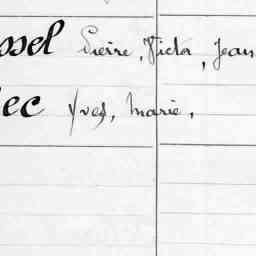 ssel Pierre, Victor, Jean
ec Yves, Marie,